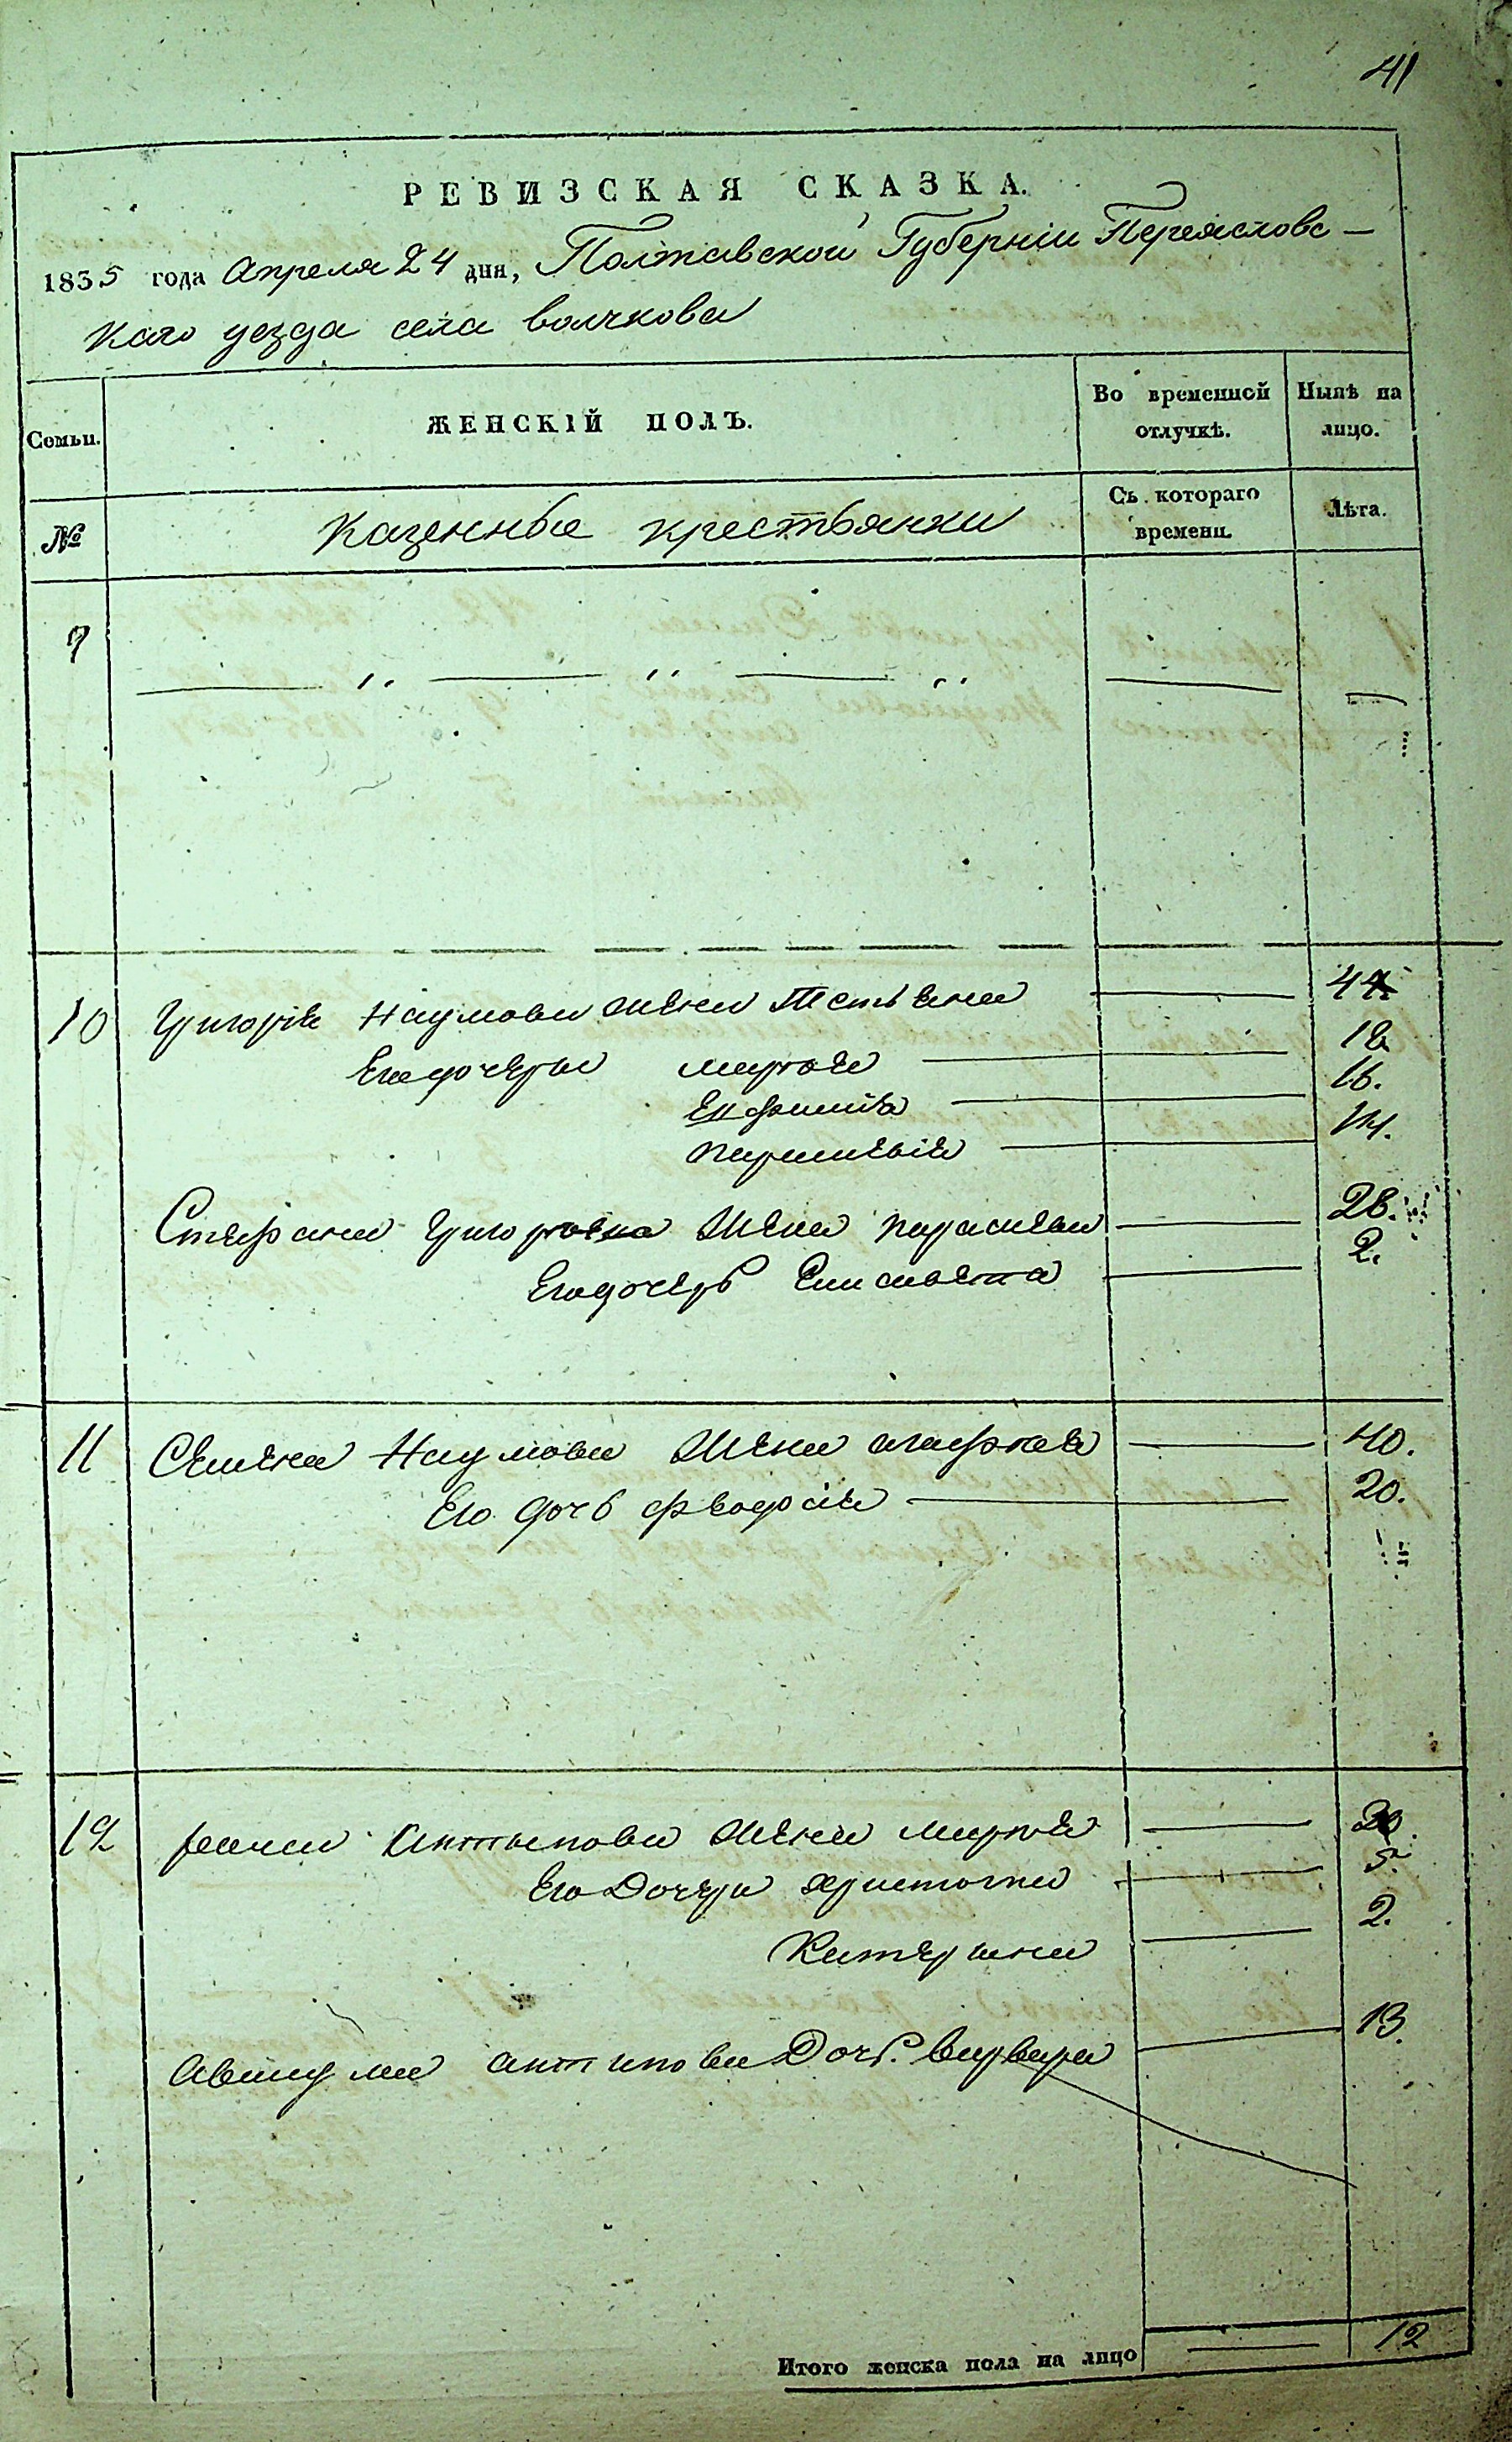 41
РЕВИЗСКАЯ СКАЗКА.
1835 года Апреля 24 дня, Полтавской Губерніи Переясловс-
каго уезда села волчкова
Семьи. ЖЕНСКІЙ ПОЛЪ. Во временной отлучкѣ. Нынѣ на лицо.
№ Казенные крестьянки Съ котораго времени. Лѣта.
9
10 Григорія Наумова жена Татьяна 44
Его дочеры марфа 18
Ефимія 16.
параскевія 14.
Стефана Григорова жена параскева 28.
Его дочерь Елисавета 2.
11 Семена Наумова жена агафия 40.
Его дочь феодосія 20.
12 Антыпова жена марфа
Его Дочери христина 5.
Катерина 2.
Авакума антипова Дочь варвара 13.
Итого женска пола на лицо 12